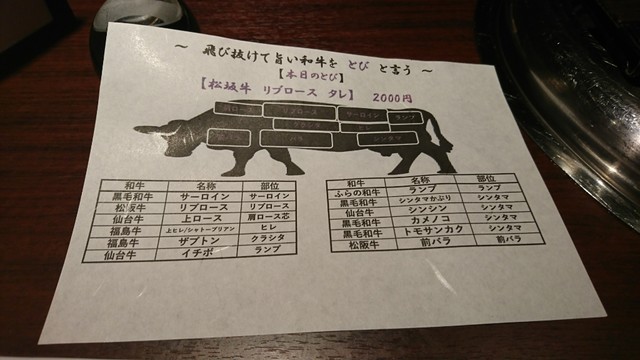 ～ 飛び抜けて旨い和牛を とび と言う ～
【本日のとび】
【松坂牛 リブロース タレ】 2000円
肩ロース リブロース サーロイン ランプ
クラシタ ヒレ
バラ シンタマ
和牛 名称 部位
黒毛和牛 サーロイン サーロイン
松阪牛 リブロース リブロース
仙台牛 上ロース 肩ロース芯
福島牛 上ヒレ/シャトーブリアン ヒレ
福島牛 ザブトン クラシタ
仙台牛 イチボ ランプ
和牛 名称 部位
ふらの和牛 ランプ ランプ
黒毛和牛 シンタマかぶり シンタマ
仙台牛 シンシン シンタマ
黒毛和牛 カメノコ シンタマ
黒毛和牛 トモサンカク シンタマ
松阪牛 前バラ 前バラ